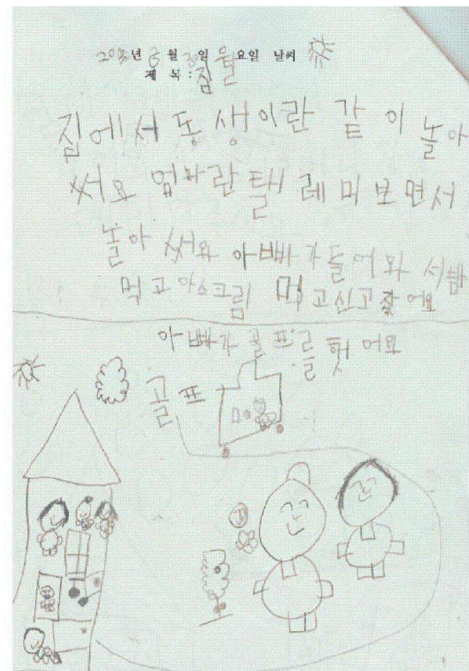 년 월 30일 월요일 날씨
제목: 집
집에서 동생이란 같이 놀아
써요 엄마란 탤레미보면서
놀아 써요 아빠가들어와서밥
먹고아스크림 먹고신고잦어요
아빠가 골프를 햇어요
골프